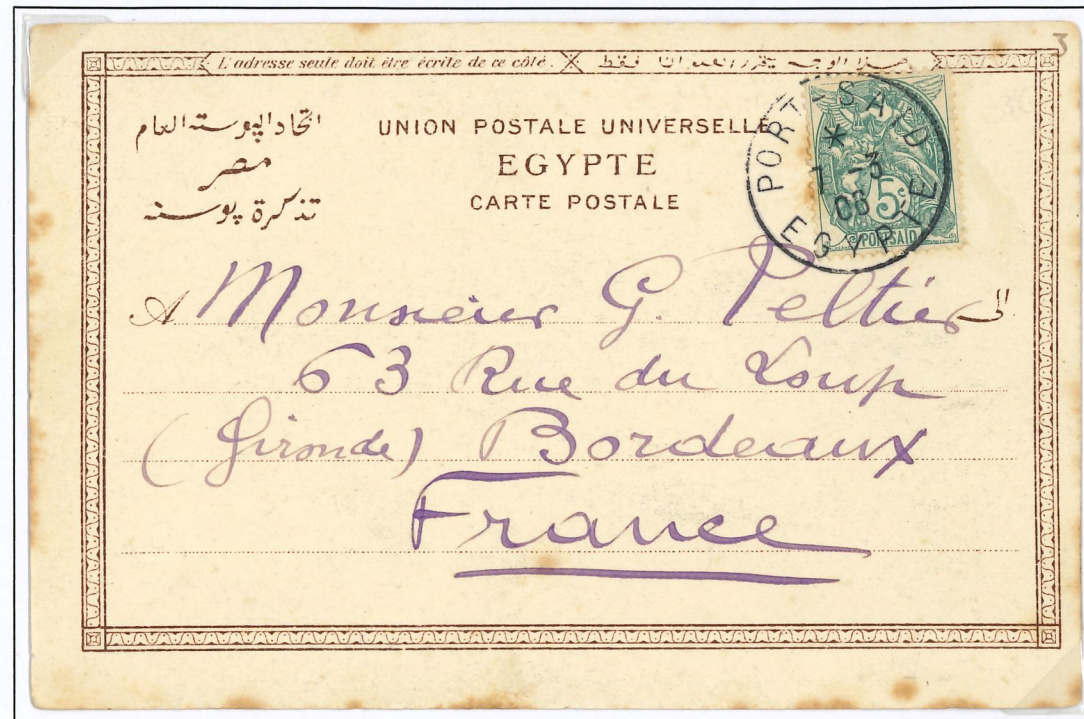 L'adresse seule doit être écrite de ce côté. هذا الوجه يحرر العنوان فقط
اتحاد البوسته العام
مصر
تذكرة بوسته
UNION POSTALE UNIVERSELLE
EGYPTE
CARTE POSTALE
PORT-SAID
*
7-3
06
EGYPTE
5c
PORT SAID
A Monsieur G. Peltier الى
63 Rue du Loup
(Gironde) Bordeaux
France
3